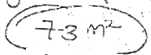 7.3 m²